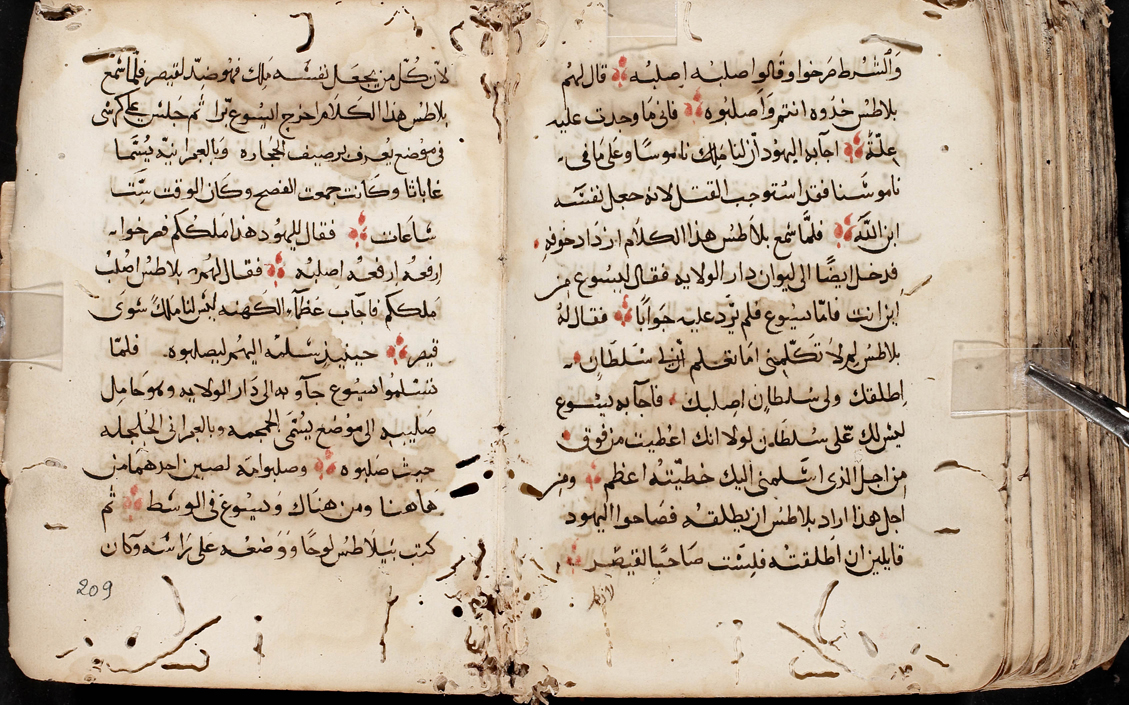 والشرط صرخوا وقالوا اصلبه اصلبه قال لهم
بلاطس خدوه انتم واصلبوه فاني ما وجدت عليه
علّة اجابه اليهود ان لنا ناموسا وعلى ما في
ناموسنا فقد استوجب القتل لانه جعل نفسه
ابن الله فلما سمع بلاطس هذا الكلام ازداد خوفه
فدخل ايضا الى ليوان دار الولايه فقال ليسوع من
اين انت فاما يسوع فلم يرد عليه جوابا فقال له
بلاطس لم لا تكلمني اما تعلم ان لي سلطان
اطلقك ولي سلطان اصلبك فاجابه يسوع
ليس لك علي سلطان لولا انك اعطيت من فوق
من اجل الذي اسلمني اليك خطيته اعظم ومن
اجل هذا اراد بلاطس ان يطلقه فصاحوا اليهود
قايلين ان اطلقته فلست صاحبا لقيصر
لان كل من يجعل نفسه ملك فهو ضد لقيصر فلما سمع
بلاطس هذا الكلام اخرج ايسوع برا ثم جلس على كرسي
في موضع يعرف برصيف الحجاره وبالعبرانيه يسما
غاباتا وكانت جمعت الفصح وكان الوقت ستت
ساعات فقال لليهود هذا ملككم فصرخوا
ارفعه ارفعه اصلبه فقال لهم بلاطس اصلب
ملككم فاجاب عظماء الكهنه ليس لنا ملك سوى
قيصر حينيذ سلمه اليهم ليصلبوه فلما
تسلموا ايسوع جاو به الى دار الولايه وهو حامل
صليبه الى موضع يسمى الجمجمه وبالعبراني الجلجله
حيث صلبوه وصلبوا معه لصين احدهما من
هاهنا ومن هناك ويسوع في الوسط ثم
كتب بيلاطس لوحا ووضعه على راسه وكان
209